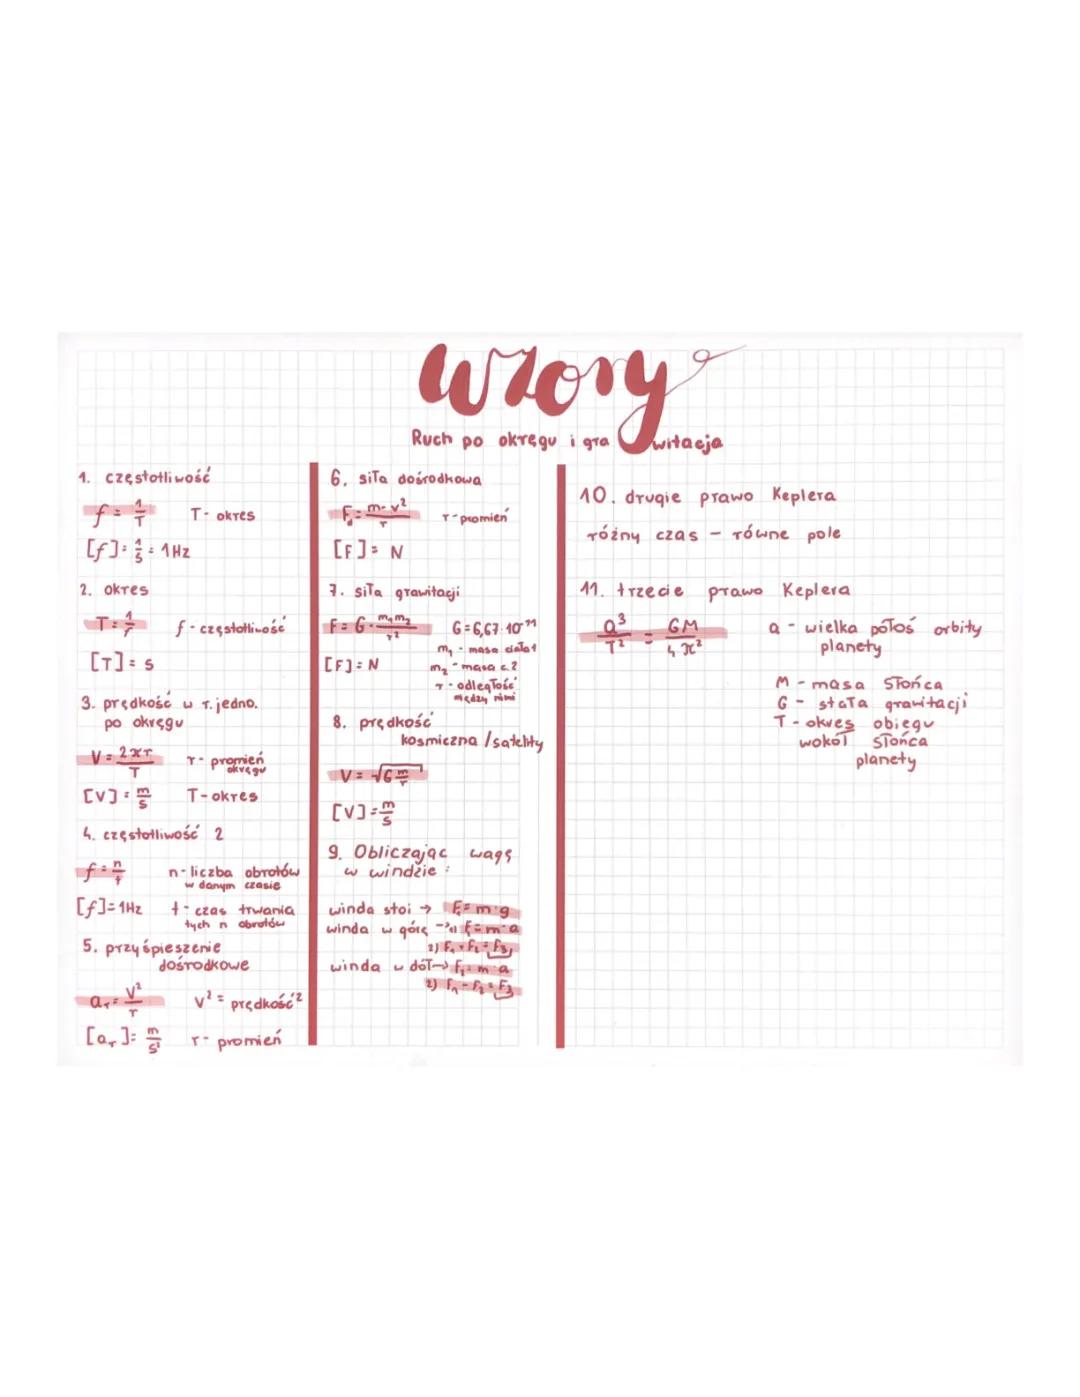 Wzory
Ruch po okręgu i grawitacja
1. częstotliwość
f = 1/T   T - okres
[f] = 1/s = 1Hz
2. okres
T = 1/f   f - częstotliwość
[T] = s
3. prędkość w r. jedno.
po okręgu
V = 2πr/T   r - promień okręgu
[V] = m/s   T - okres
4. częstotliwość 2
f = n/t   n - liczba obrotów
w danym czasie
[f] = 1Hz   t - czas trwania
tych n obrotów
5. przyśpieszenie
dośrodkowe
ar = V²/r   V² = prędkość²
[ar] = m/s²   r - promień
6. siła dośrodkowa
Fd = m·v²/r   r - promień
[F] = N
7. siła grawitacji
F = G · m₁m₂/r²   G = 6,67·10⁻¹¹
m₁ - masa ciała 1
[F] = N   m₂ - masa c. 2
r - odległość
między nimi
8. prędkość
kosmiczna / satelity
V = √G m/r
[V] = m/s
9. Obliczając wagę
w windzie :
winda stoi → F₁ = m·g
winda w górę → 1) F = m·a
2) F₁ + F₂ = F₃
winda w dół → F₁ = m·a
2) F₁ - F₂ = F₃
10. drugie prawo Keplera
różny czas - równe pole
11. trzecie prawo Keplera
a³/T² = GM/4π²   a - wielka półoś orbity
planety
M - masa Słońca
G - stała grawitacji
T - okres obiegu
wokół Słońca
planety